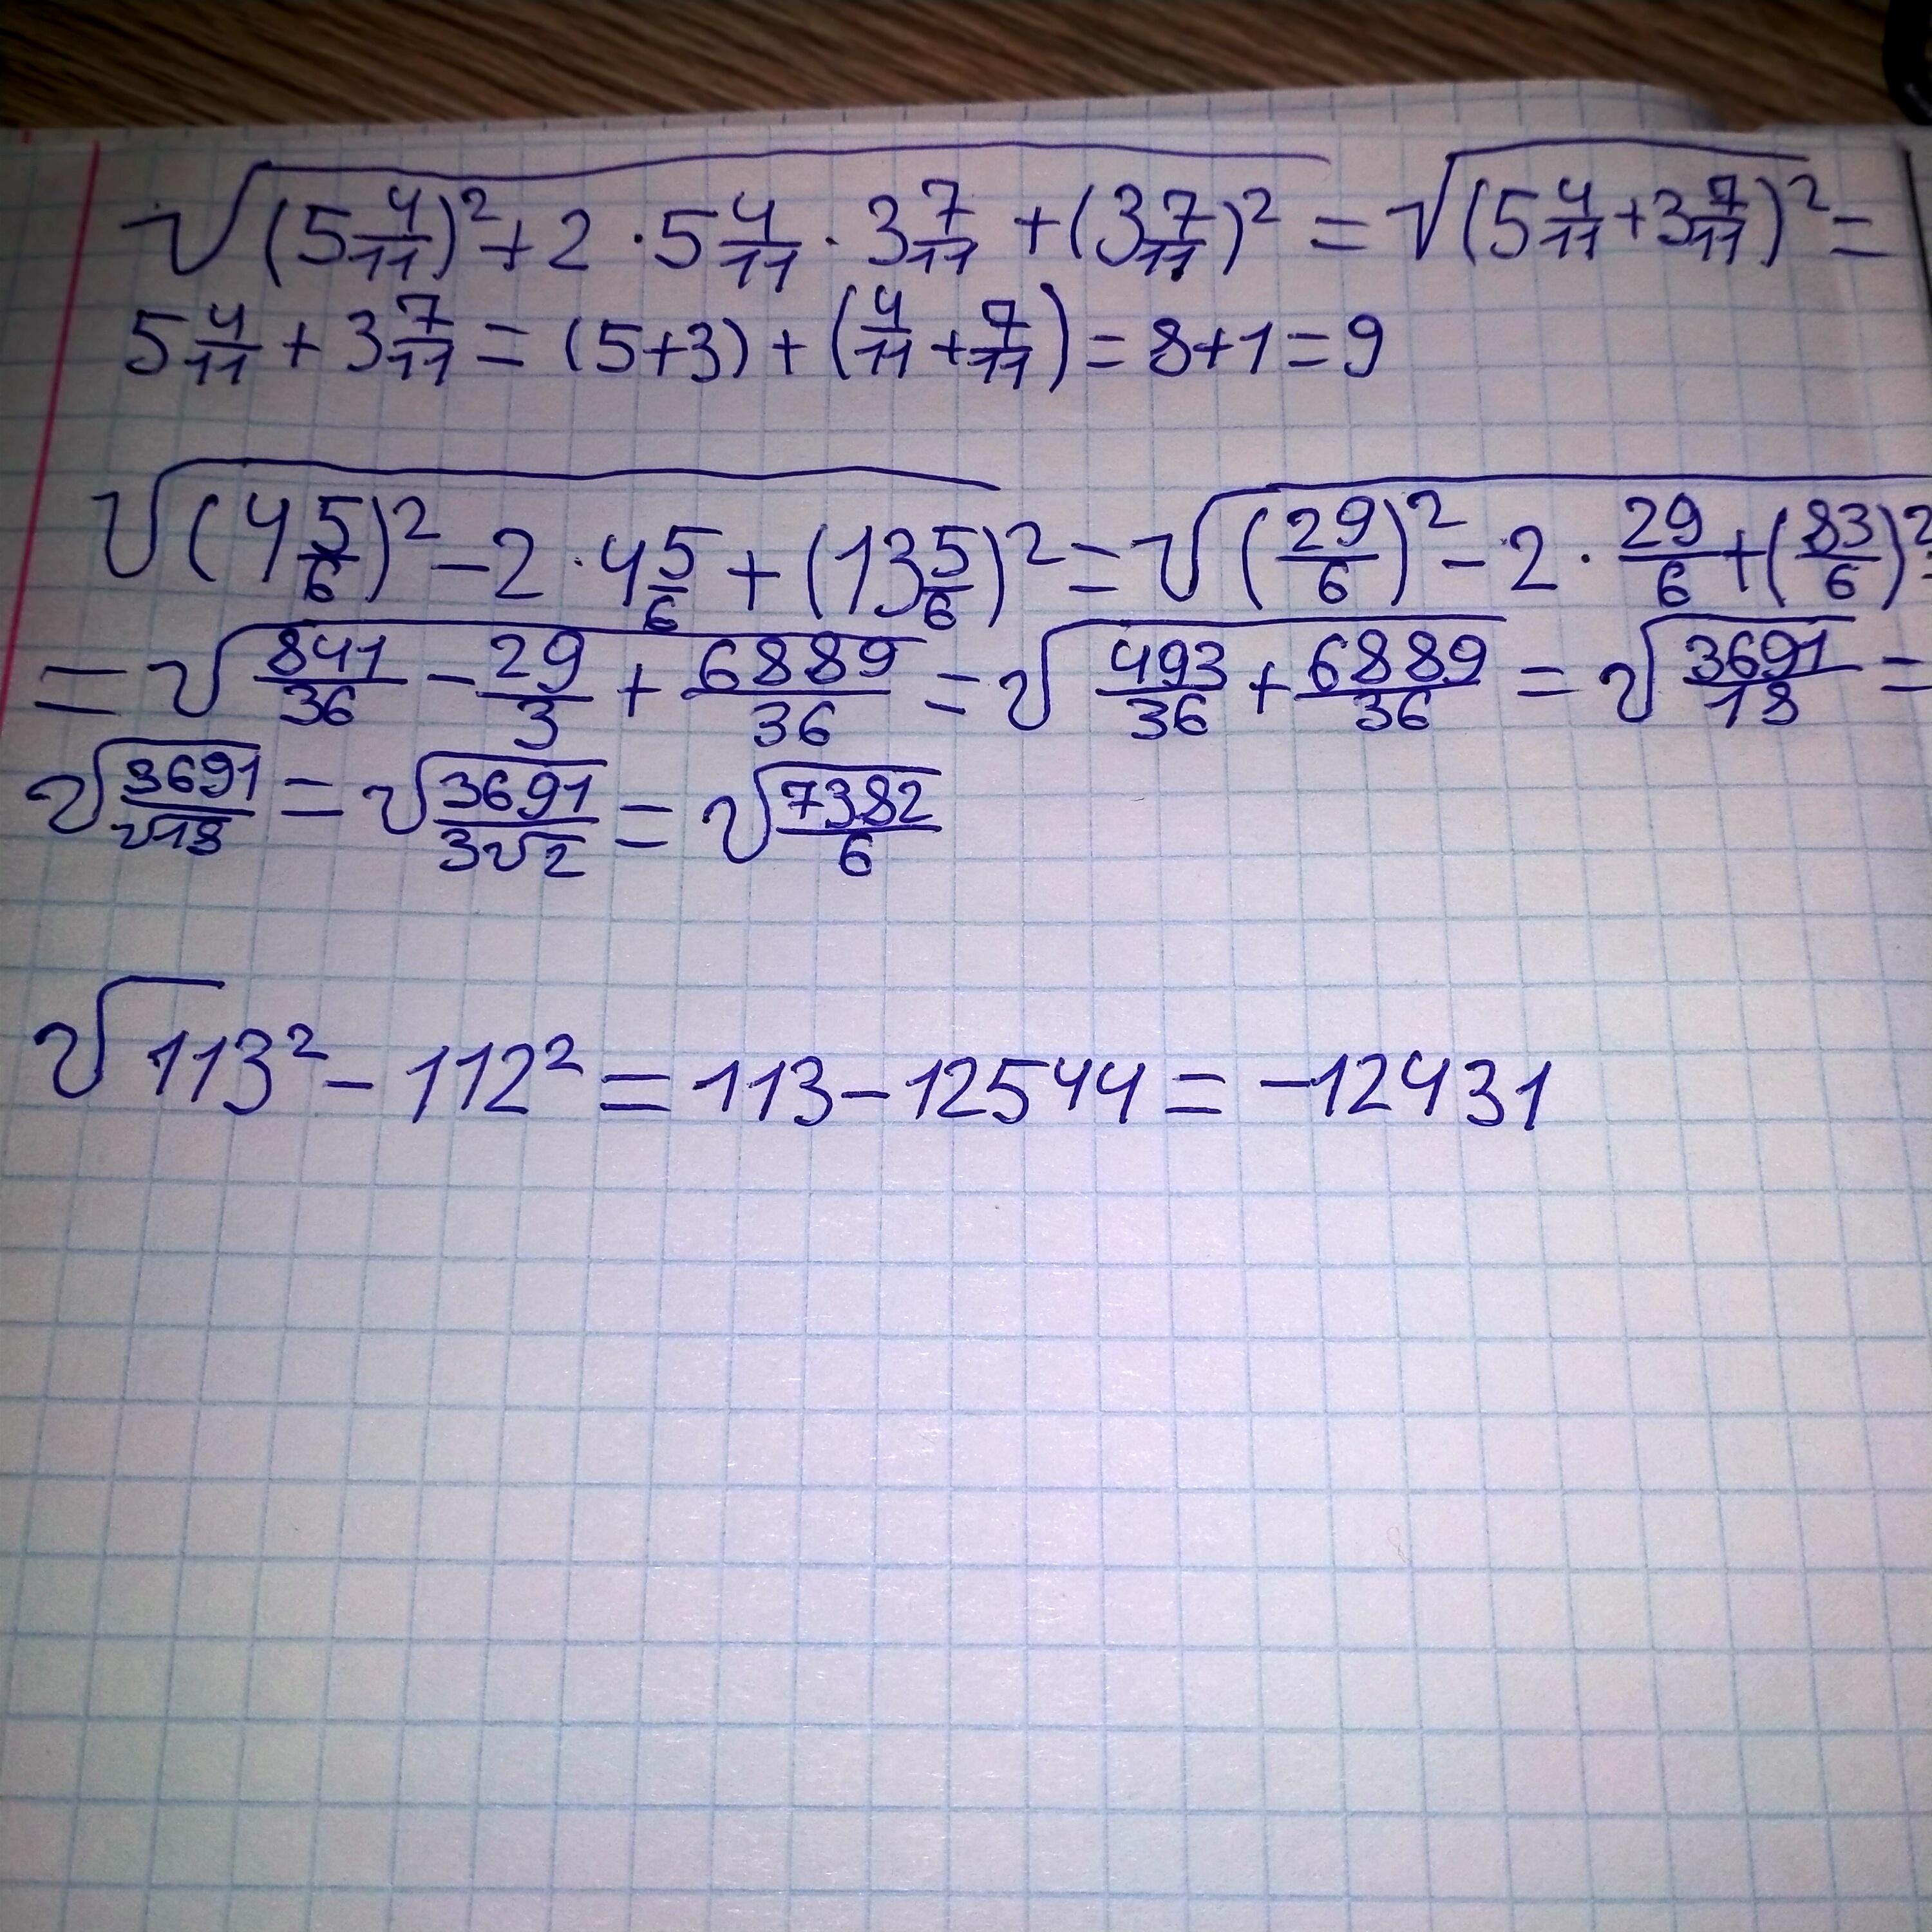 √(5 4/11)² + 2 · 5 4/11 · 3 7/11 + (3 7/11)² = √(5 4/11 + 3 7/11)² =
5 4/11 + 3 7/11 = (5+3) + (4/11 + 7/11) = 8+1 = 9
√(4 5/6)² - 2 · 4 5/6 + (13 5/6)² = √(29/6)² - 2 · 29/6 + (83/6)² =
= √841/36 - 29/3 + 6889/36 = √493/36 + 6889/36 = √3691/18 =
√3691/√18 = √3691/3√2 = √7382/6
√113² - 112² = 113 - 12544 = -12431